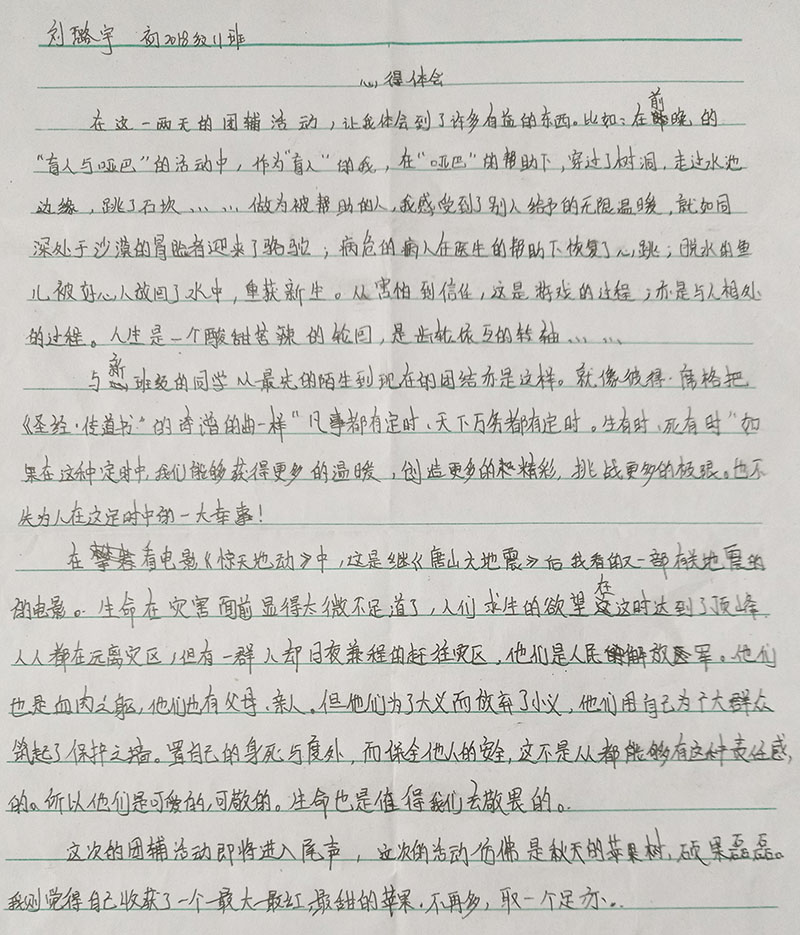 刘璐宇 初2018级11班
心得体会
在这一两天的团辅活动，让我体会到了许多有益的东西。比如：在前晚的
“盲人与哑巴”的活动中，作为“盲人”的我，在“哑巴”的帮助下，穿过了树洞，走过水池
边缘，跳了石坎……做为被帮助的人，我感受到了别人给予的无限温暖，就如同
深处于沙漠的冒险者迎来了骆驼；病危的病人在医生的帮助下恢复了心跳；脱水的鱼
儿被好心人放回了水中，重获新生。从害怕到信任，这是游戏的过程；亦是与人相处
的过程。人生是一个酸甜苦辣的轮回，是齿轮依互的转轴……
与新班级的同学从最先的陌生到现在的团结亦是这样。就像彼得·席格把
《圣经·传道书”的奇谱的曲一样“凡事都有定时、天下万务都有定时。生有时、死有时”如
果在这种定时中，我们能够获得更多的温暖，创造更多的精彩，挑战更多的极限。也不
失为人在这定时中的一大幸事！
在看电影《惊天地动》中，这是继《唐山大地震》后我看的又一部有关地震的
的电影。生命在灾害面前显得太微不足道了，人们求生的欲望在这时达到了顶峰
人人都在远离灾区，但有一群人却日夜兼程的赶往灾区，他们是人民解放军。他们
也是血肉之躯，他们也有父母、亲人。但他们为了大义而放弃了小义，他们用自己为广大群众
筑起了保护之墙。置自己的身死与度外，而保全他人的安全，这不是人都能够有这种责任感，
的。所以他们是可爱的，可敬的。生命也是值得我们去敬畏的。
这次的团辅活动即将进入尾声，这次的活动仿佛是秋天的苹果树，硕果磊磊。
我则觉得自己收获了一个最大最红，最甜的苹果，不再多，取一个足亦。